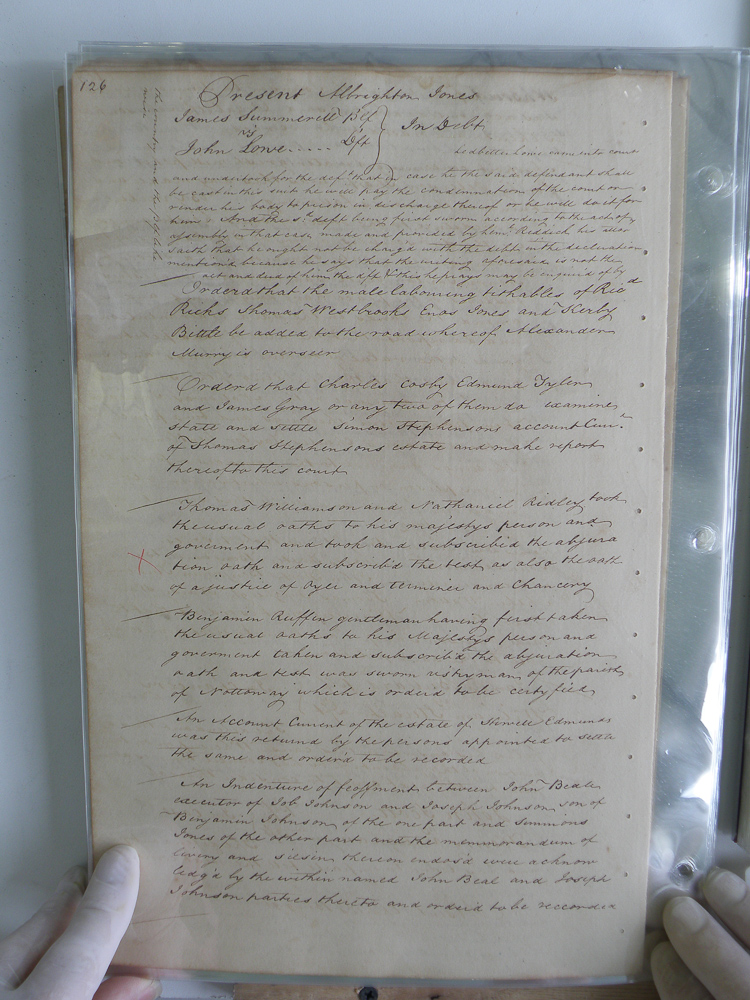 126
Present Albrighton Jones
James Summerell Plf
vs
In Debt
John Lowe..... Dft
came into court
and undertook for the deft. that in case he the said defendant shall
be cast in this suit he will pay the condemnation of the court or
render his body to prison in discharge thereof or he will do it for
him. And the sd. deft being first sworn according to the act of
assembly in that case made and provided by Reddick his attor
saith that he ought not be charg'd with the debt in the declaration
mention'd because he says that the writing aforesaid is not the
act and deed of him the dft & this he prays may be enquired of by
the country and the plf
Orderd that the male labouring tithables of Ricd
Ricks Thomas Westbrooks Enos Jones and Kerby
Bittle be added to the road whereof Alexander
Murry is overseer
Orderd that Charles Cosby Edmund Tyler
and James Gray or any two of them do examine
state and settle Simon Stephensons account Curr.t
of Thomas Stephensons estate and make report
thereof to this court
Thomas Williamson and Nathaniel Ridley took
the usual oaths to his majestys person and
goverment and took and subscrib'd the abjura
tion oath and subscrib'd the test as also the oath
of a justice of Oyer and terminer and Chancery
Benjamin Ruffin gentleman having first taken
the usual oaths to his Majestys person and
goverment taken and subscrib'd the abjuration
oath and test was sworn vestryman of the parish
of Nottoway which is order'd to be certifyed
An Account Current of the estate of Howell Edmunds
was this returned by the persons appointed to settle
the same and order'd to be recorded
An Indenture of feoffment between John Beale
executor of Job Johnson and Joseph Johnson son of
Benjamin Johnson of the one part and Simmons
Jones of the other part and the memorandum of
livery and seisen thereon endors'd were acknow
ledg'd by the within named John Beal and Joseph
Johnson parties thereto and order'd to be recorded